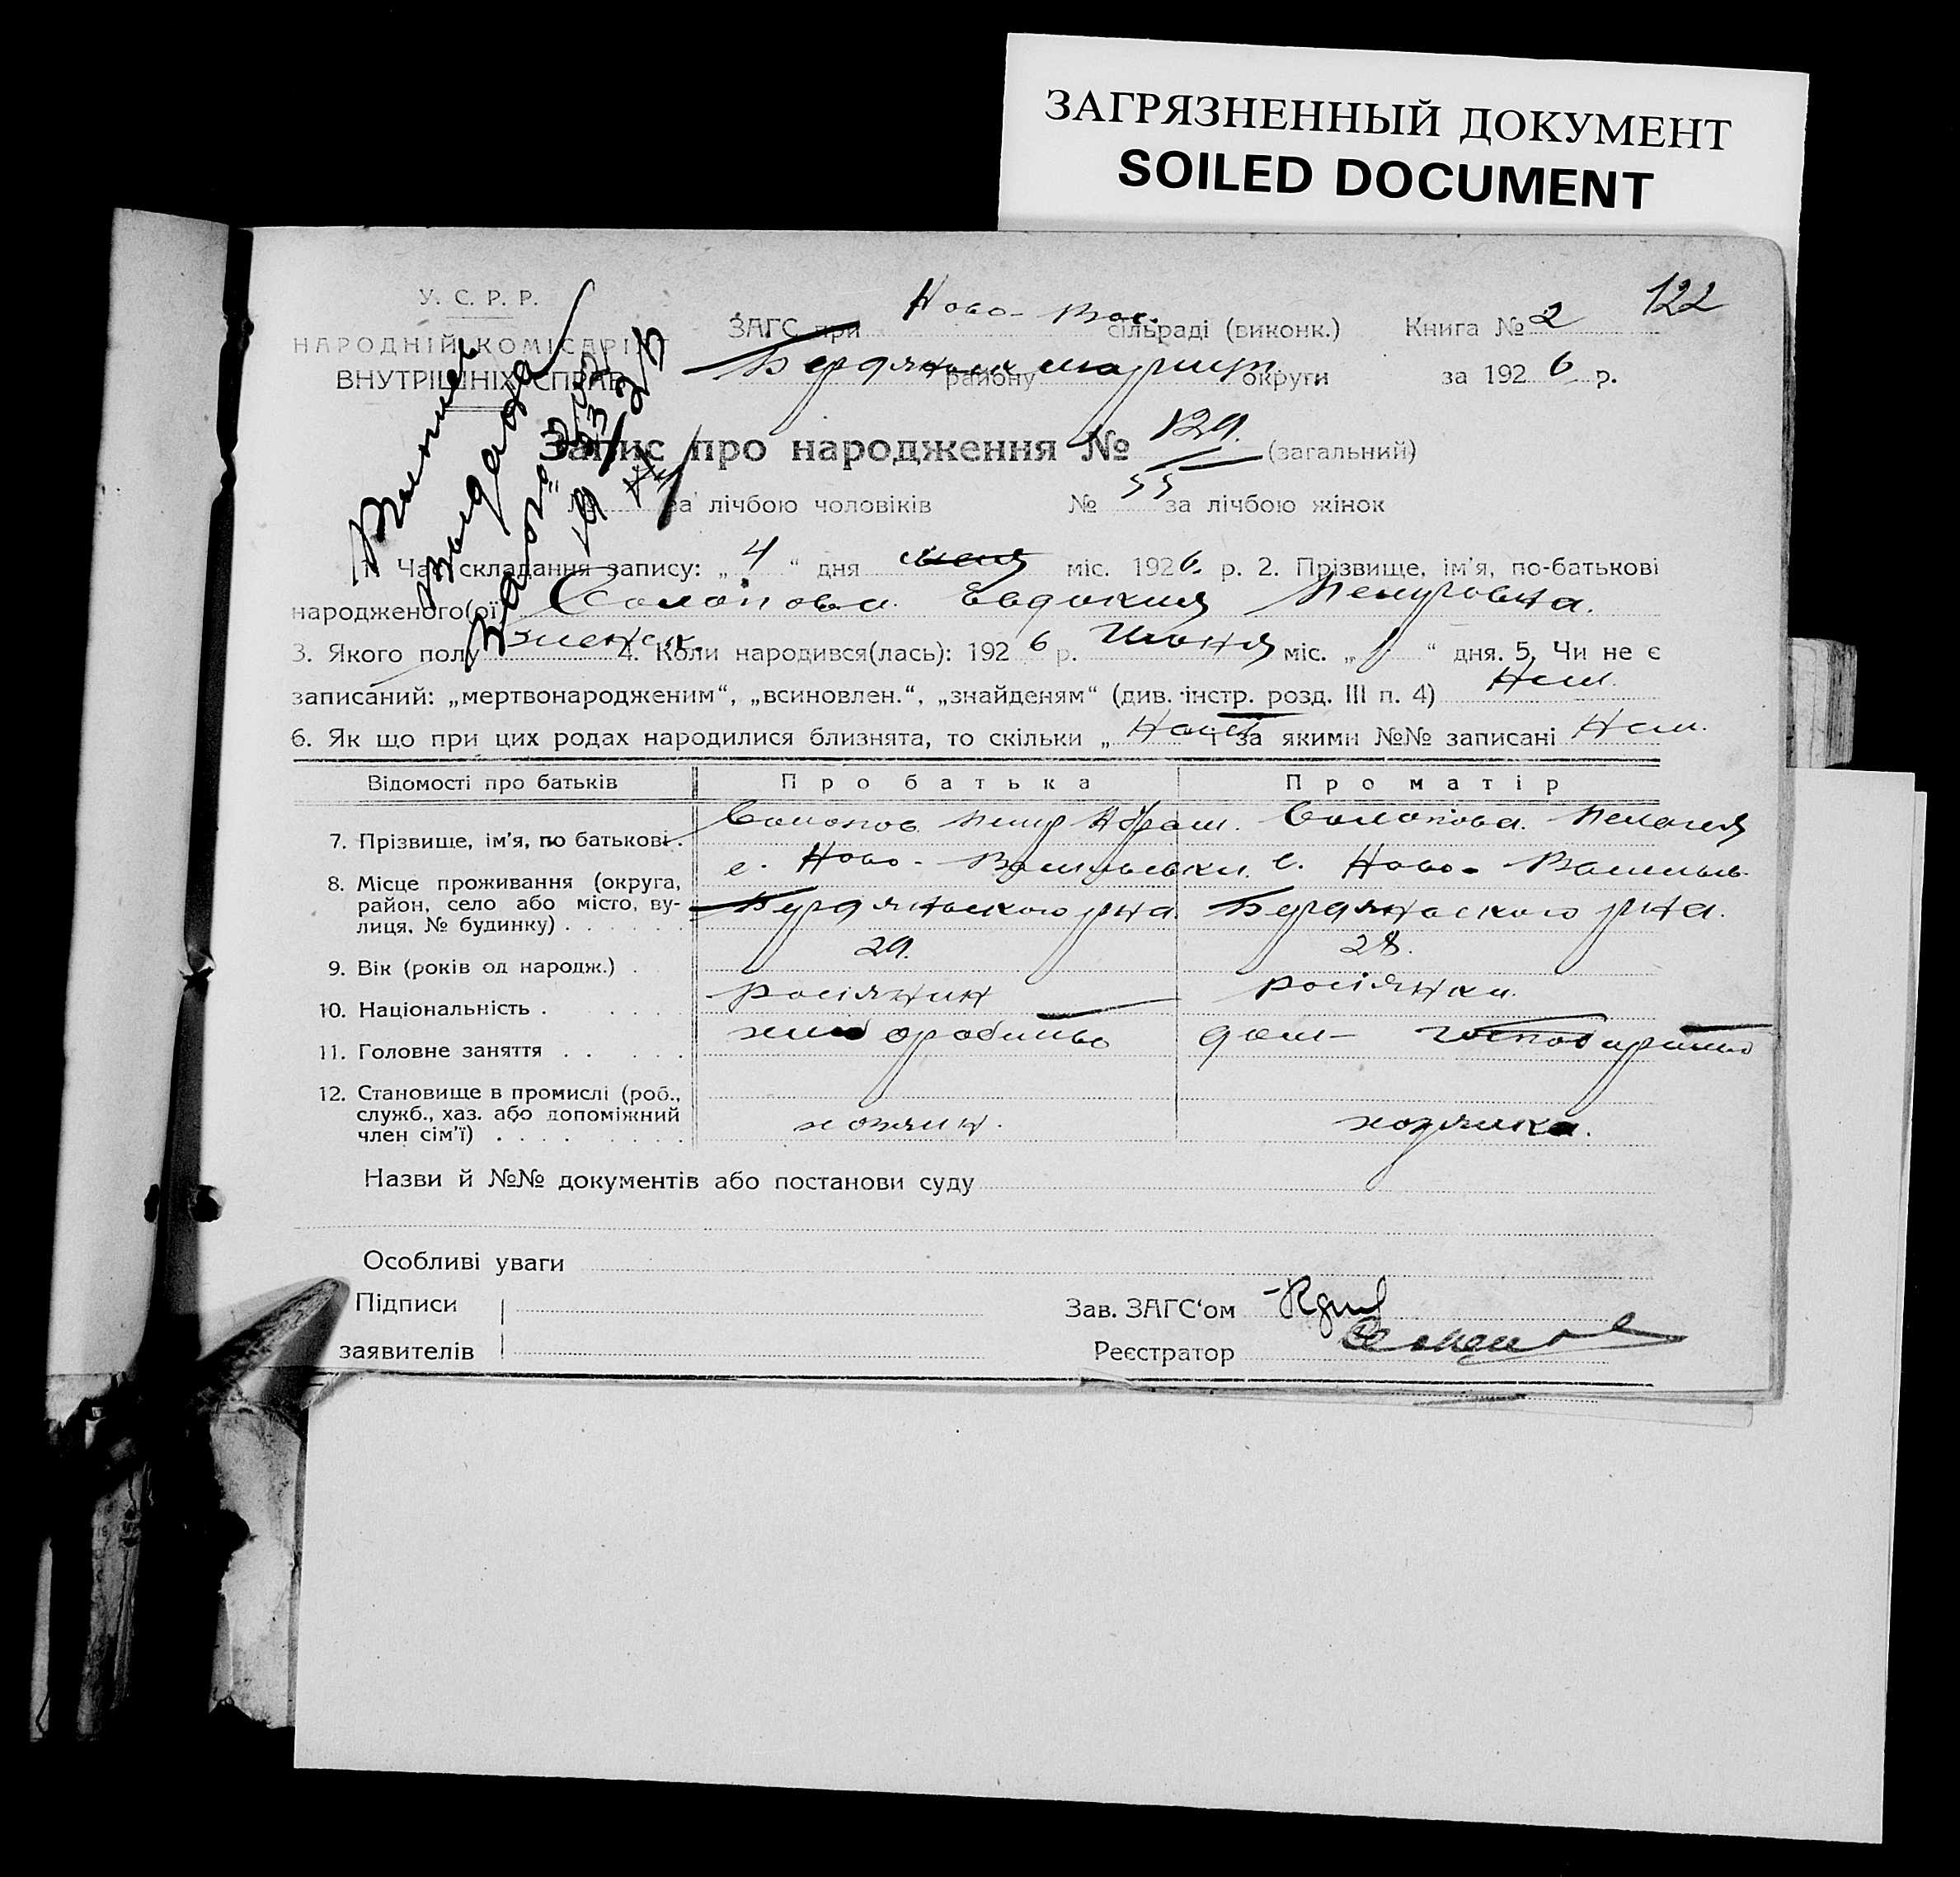 ЗАГРЯЗНЕННЫЙ ДОКУМЕНТ
SOILED DOCUMENT
122
У. С. Р. Р.
НАРОДНІЙ КОМІСАРІЯТ
ВНУТРІШНІХ СПРАВ
ЗАГС при Ново-Вас. сільраді (виконк.) Книга № 2
району округи за 1926 р.
Запис про народження № 129. (загальний)
№ за лічбою чоловіків № 55 за лічбою жінок
1. Час складання запису: „4“ дня міс. 1926. р. 2. Прізвище, ім'я, по-батькові
народженого(ої) Солопова Евдокия Петровна.
3. Якого полу женск. 4. Коли народився(лась): 1926 р. Июня міс. „1“ дня. 5. Чи не є
записаний: „мертвонародженим“, „всиновлен.“, „знайденям“ (див. інстр. розд. III п. 4) Нет.
6. Як що при цих родах народилися близнята, то скільки „ і за якими №№ записані Нет.
Відомості про батьків Про батька Про матір
7. Прізвище, ім'я, по батькові. Солопов Петр Абрам. Солопова Пелагея
8. Місце проживання (округа, район, село або місто, вулиця, № будинку) с. Ново-Васильевки с. Ново-Васильев.
Бердянського р-на Бердянського р-на.
9. Вік (років од народж.) 29. 28.
10. Національність росіянин росіянка.
11. Головне заняття хліборобство дом-господарство
12. Становище в промислі (роб., служб., хаз. або допоміжний член сім'ї) хозяин. хозяйка.
Назви й №№ документів або постанови суду
Особливі уваги
Підписи
заявителів
Зав. ЗАГС'ом
Реєстратор